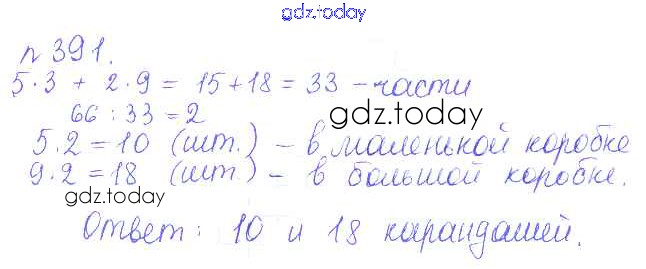 gdz.today
№ 391.
5·3 + 2·9 = 15+18 = 33 - части
66 : 33 = 2
gdz.today
5·2 = 10 (шт.) - в маленькой коробке
9·2 = 18 (шт) - в большой коробке.
gdz.today
Ответ: 10 и 18 карандашей.